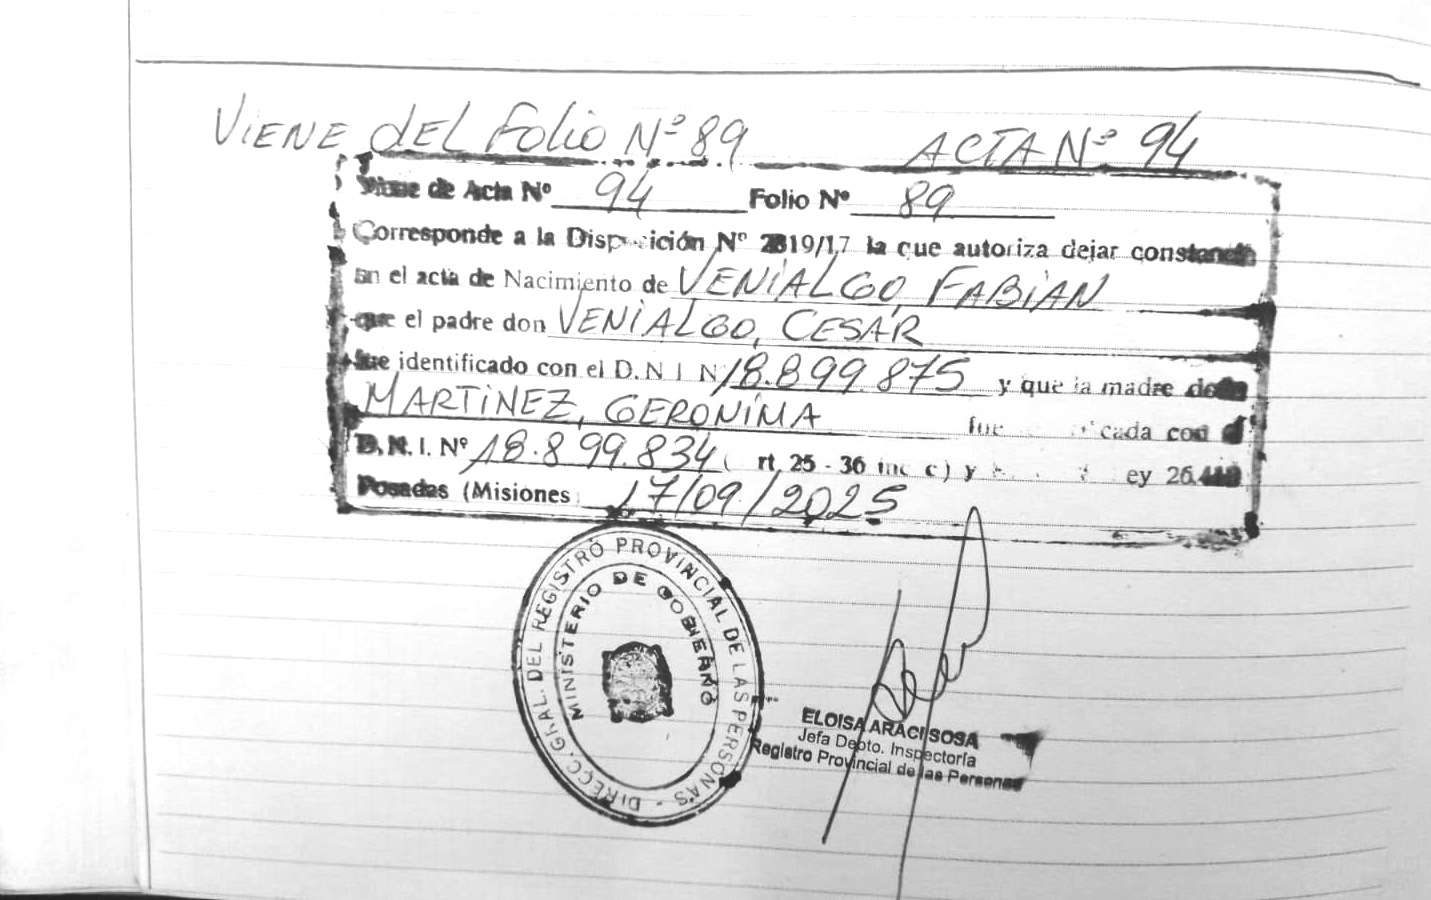 VIENE dEL folio Nº 89 ACTA Nº 94
Viene de Acta Nº 94 Folio Nº 89
Corresponde a la Disposición Nº 2819/17 la que autoriza dejar constancia
en el acta de Nacimiento de VENIALGO, FABIAN
que el padre don VENIALGO, CESAR
fue identificado con el D.N.I Nº 18.899.875 y que la madre doña
MARTINEZ, GERONIMA fue cada con el
D.N.I. Nº 18.899.834 ( rt. 25 - 36 inc c) y ey 26.413
Posadas (Misiones) 17/09/2025
DIRECC. GRAL. DEL REGISTRO PROVINCIAL DE LAS PERSONAS -
MINISTERIO DE GOBIERNO
ELOISA ARACI SOSA
Jefa Depto. Inspectoría
Registro Provincial de las Personas